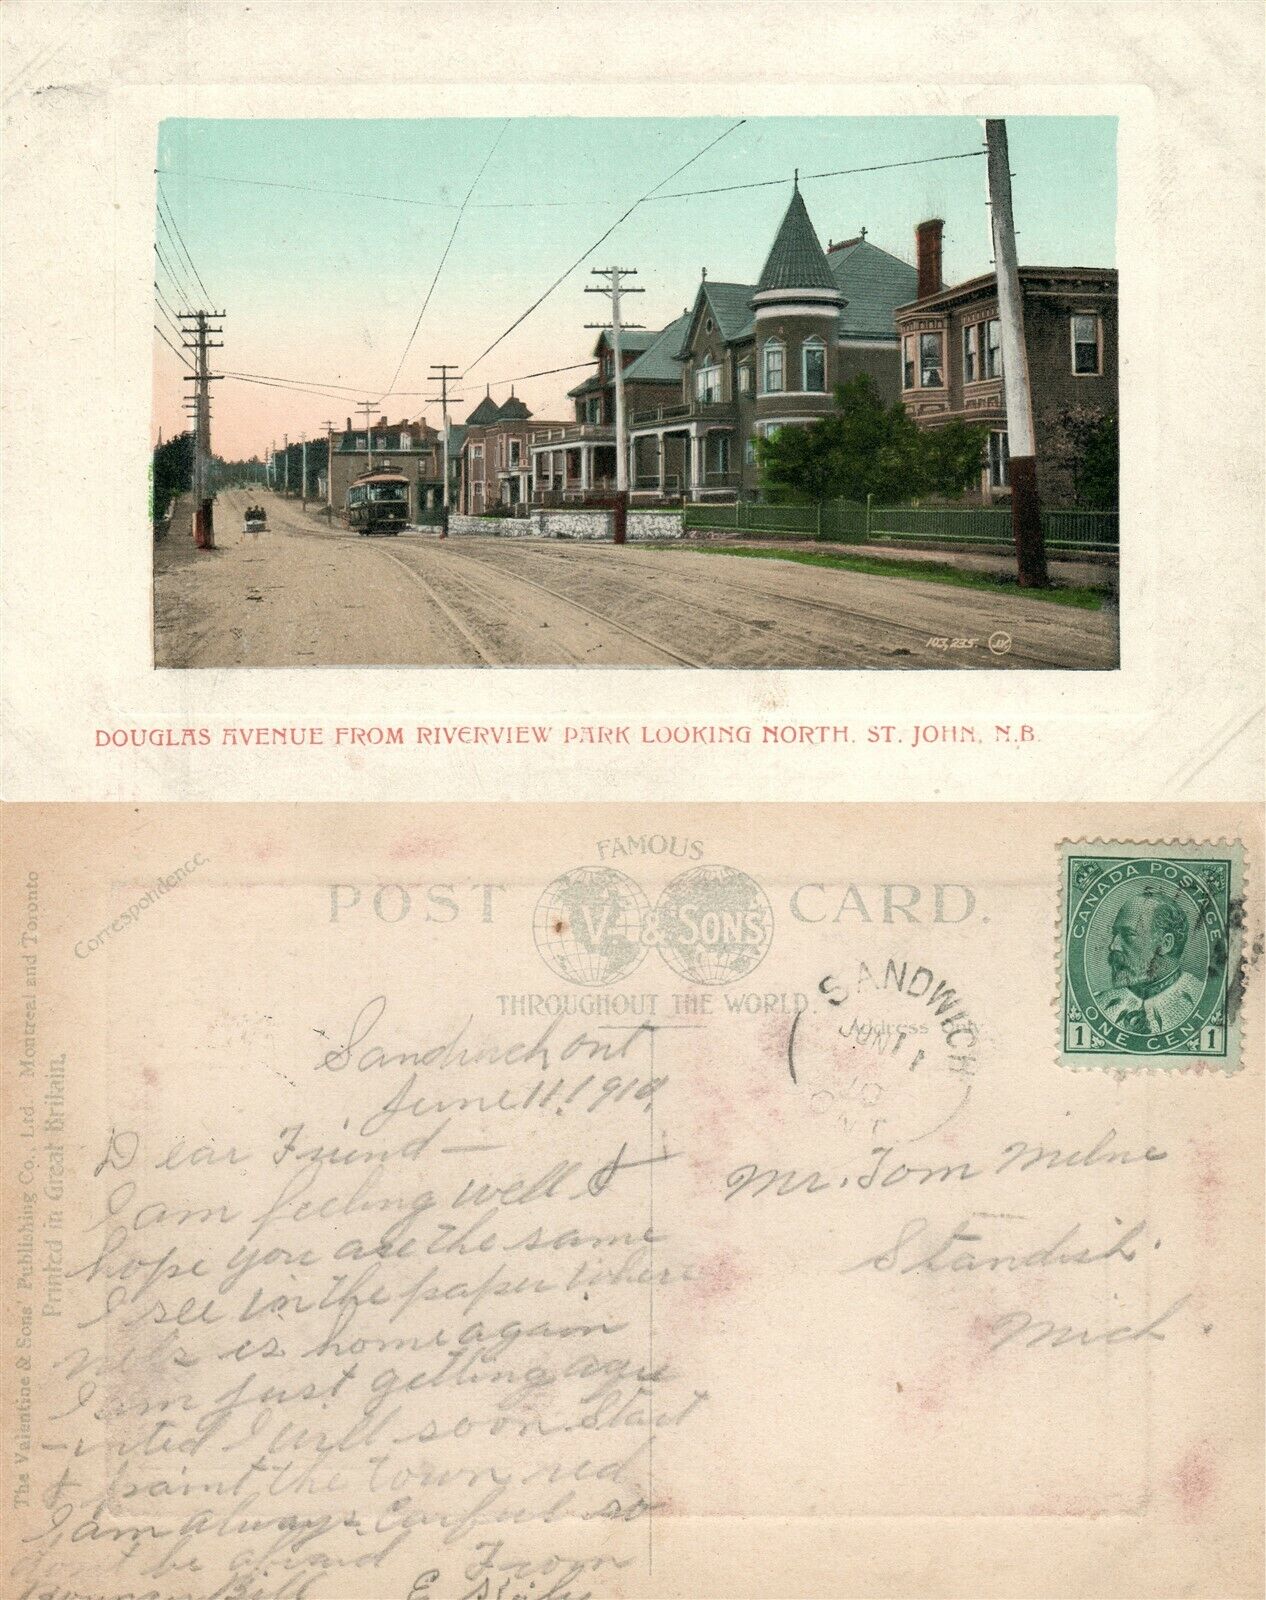 103,235. JV
DOUGLAS AVENUE FROM RIVERVIEW PARK LOOKING NORTH, ST. JOHN, N.B.
FAMOUS
POST CARD.
V & SONS
THROUGHOUT THE WORLD.
Correspondence.
Address Only
The Valentine & Sons Publishing Co., Ltd. Montreal and Toronto
Printed in Great Britain.
CANADA POSTAGE
1 ONE CENT 1
SANDWICH
JUN 11
ONT
Sandwich Ont
June 11, 1910,
Dear Friend —
I am feeling well &
hope you are the same
I see in the paper where
is home again
I am just getting aqu
-inted I will soon start
& paint the town red
I am always Carful so
don't be afraid From
Bill E
Mr. Tom Milne
Standish.
Mich.